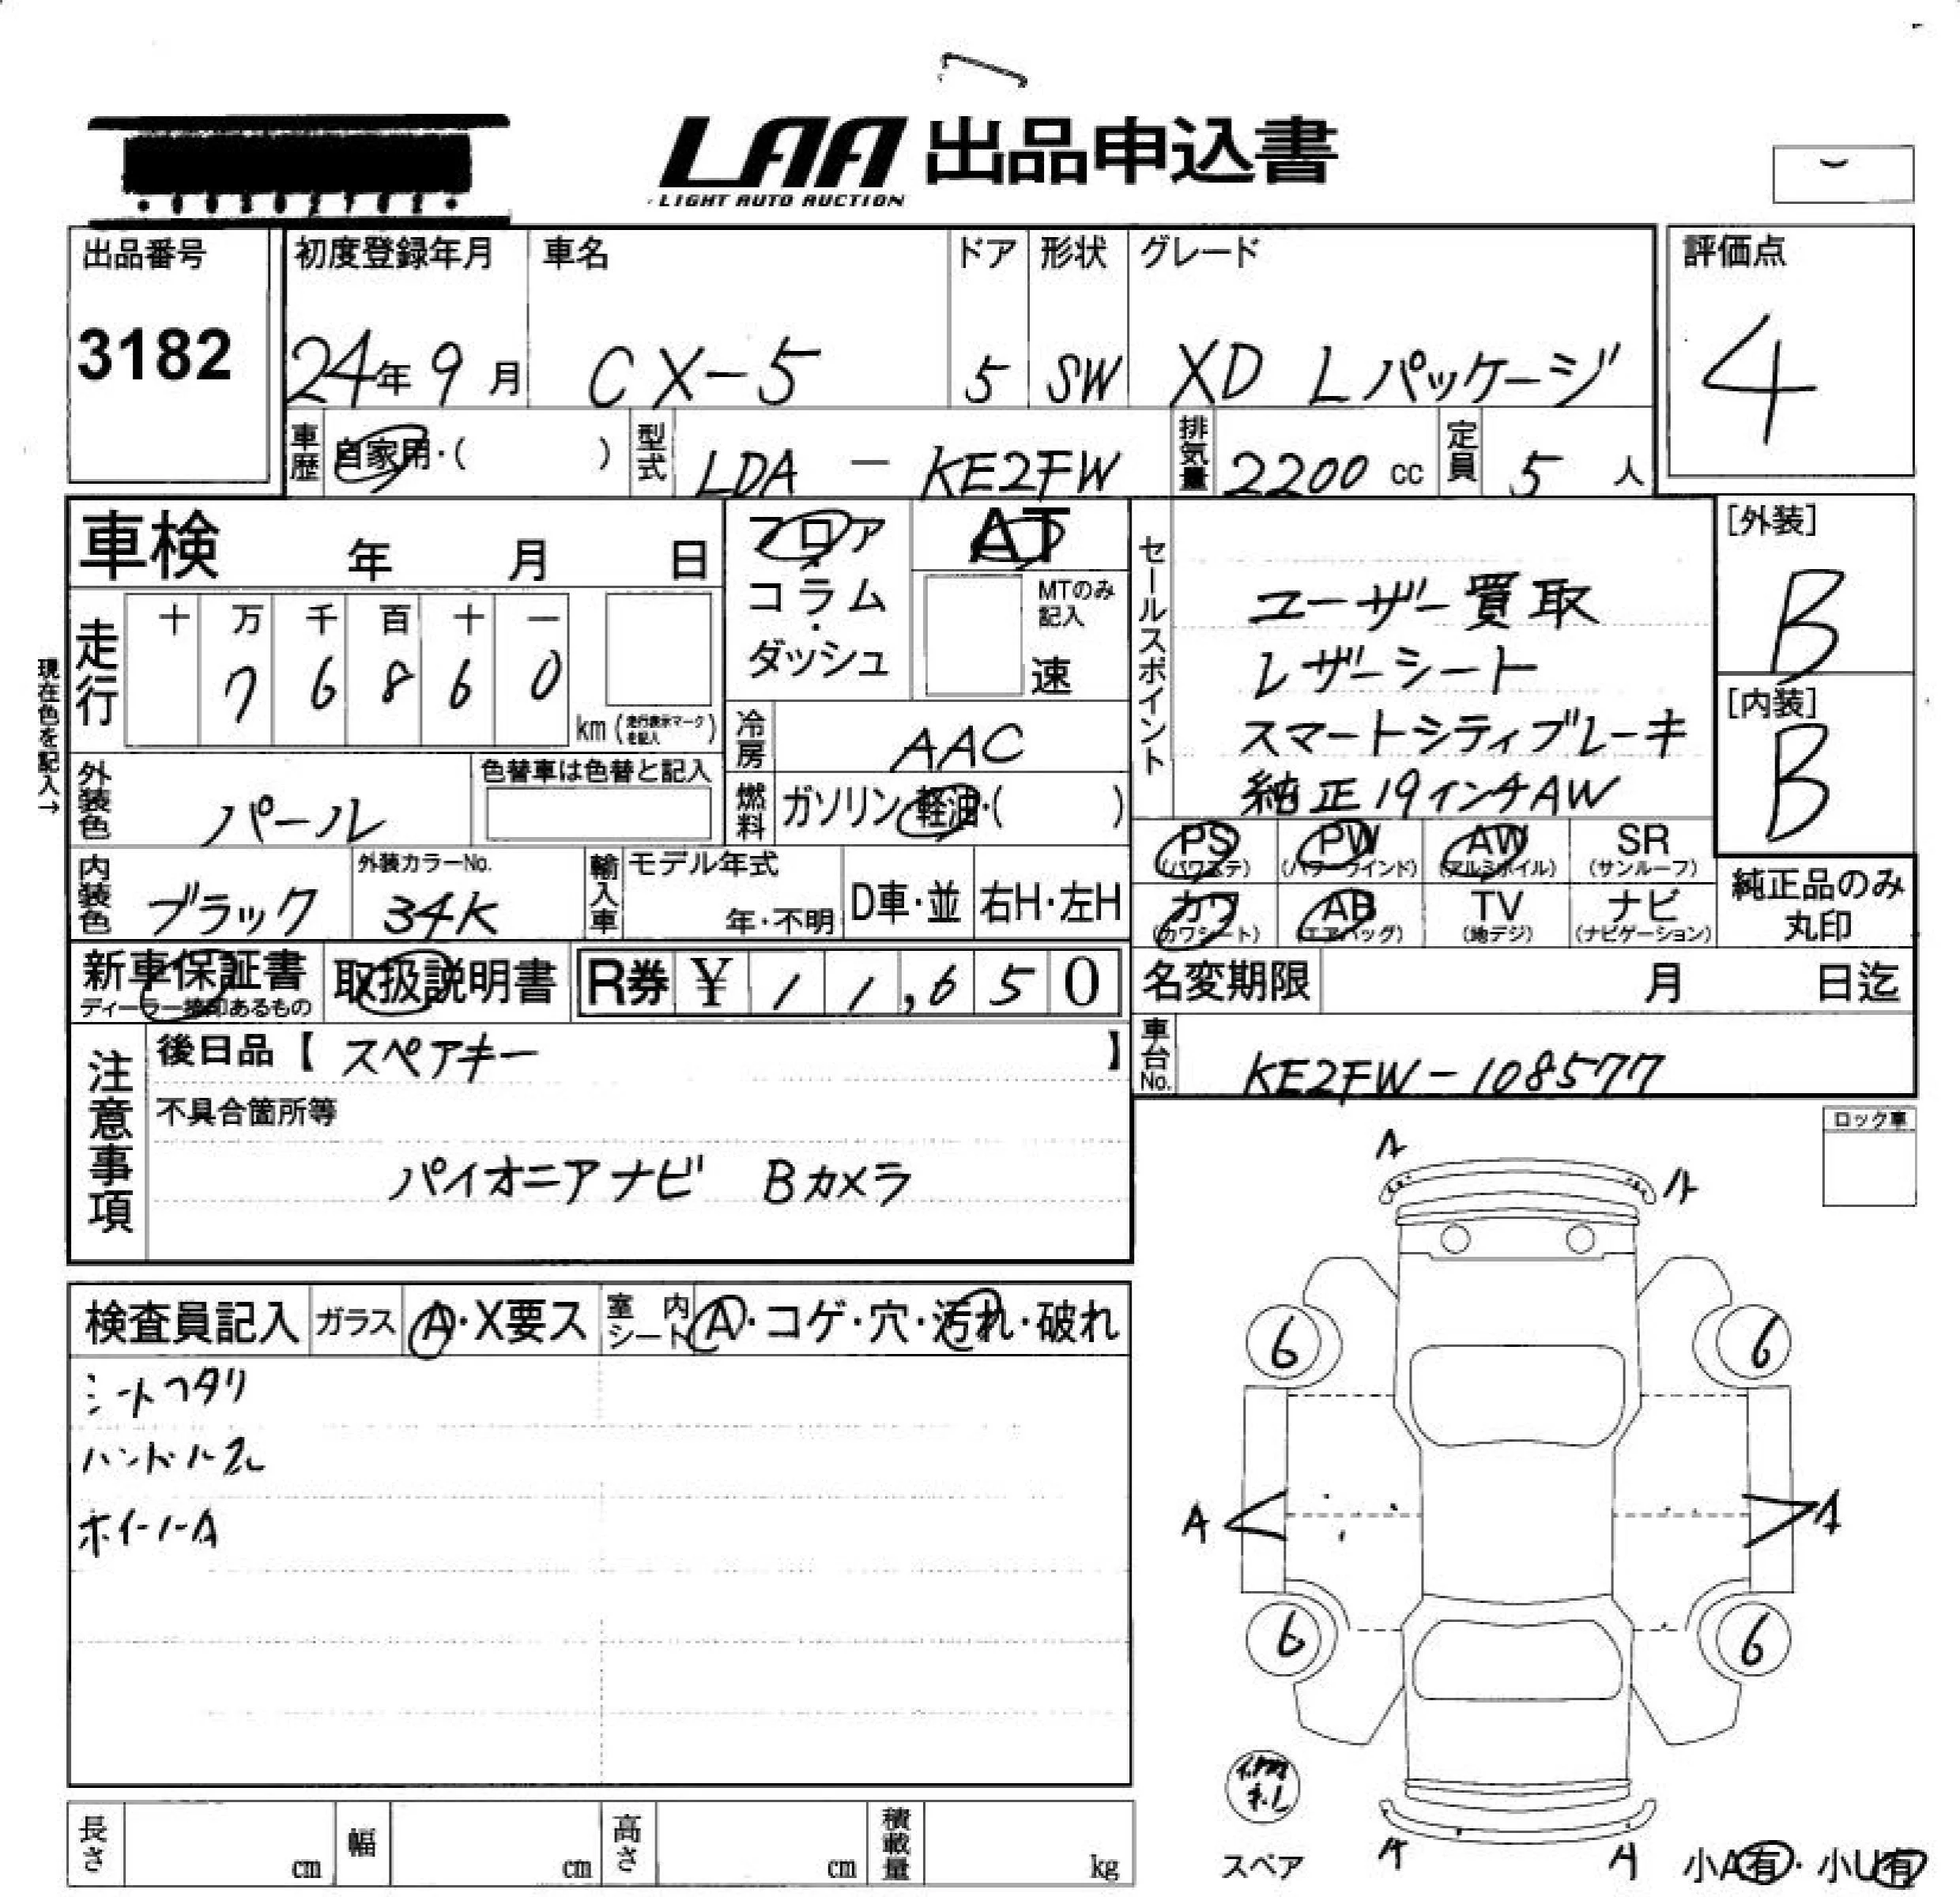 LAA 出品申込書
LIGHT AUTO AUCTION
出品番号 初度登録年月 車名 ドア 形状 グレード 評価点
3182 24年 9月 CX-5 5 SW XD Lパッケージ 4
車歴 自家用・( ) 型式 LDA - KE2FW 排気量 2200 cc 定員 5 人
車検 年 月 日 フロア・コラム・ダッシュ AT
MTのみ記入 速
現在色を記入→
走行 十 万 千 百 十 一
7 6 8 6 0
km (走行表示マークを記入)
冷房 AAC
セールスポイント
ユーザー買取
レザーシート
スマートシティブレーキ
純正19インチAW
[外装]
B
[内装]
B
外装色 パール 色替車は色替と記入
燃料 ガソリン・軽油・( )
内装色 ブラック 外装カラーNo. 34K 輸入車 モデル年式 年・不明 D車・並 右H・左H
PS (パワステ) PW (パワーウインド) AW (アルミホイル) SR (サンルーフ)
カワ (カワシート) AB (エアバッグ) TV (地デジ) ナビ (ナビゲーション)
純正品のみ
丸印
新車保証書 取扱説明書 R券 ¥ 1 1,6 5 0
名変期限 月 日迄
車台No. KE2FW-108577
注意事項
後日品【 スペアキー 】
不具合箇所等
パイオニアナビ Bカメラ
ロック車
検査員記入 ガラス A・X要ス 室内シート A・コゲ・穴・汚れ・破れ
シートヘタリ
ハンドルスレ
ホイールA
A A
6 6
A A
6 6
スペア
A A
小A有・小U有
長さ cm 幅 cm 高さ cm 積載量 kg